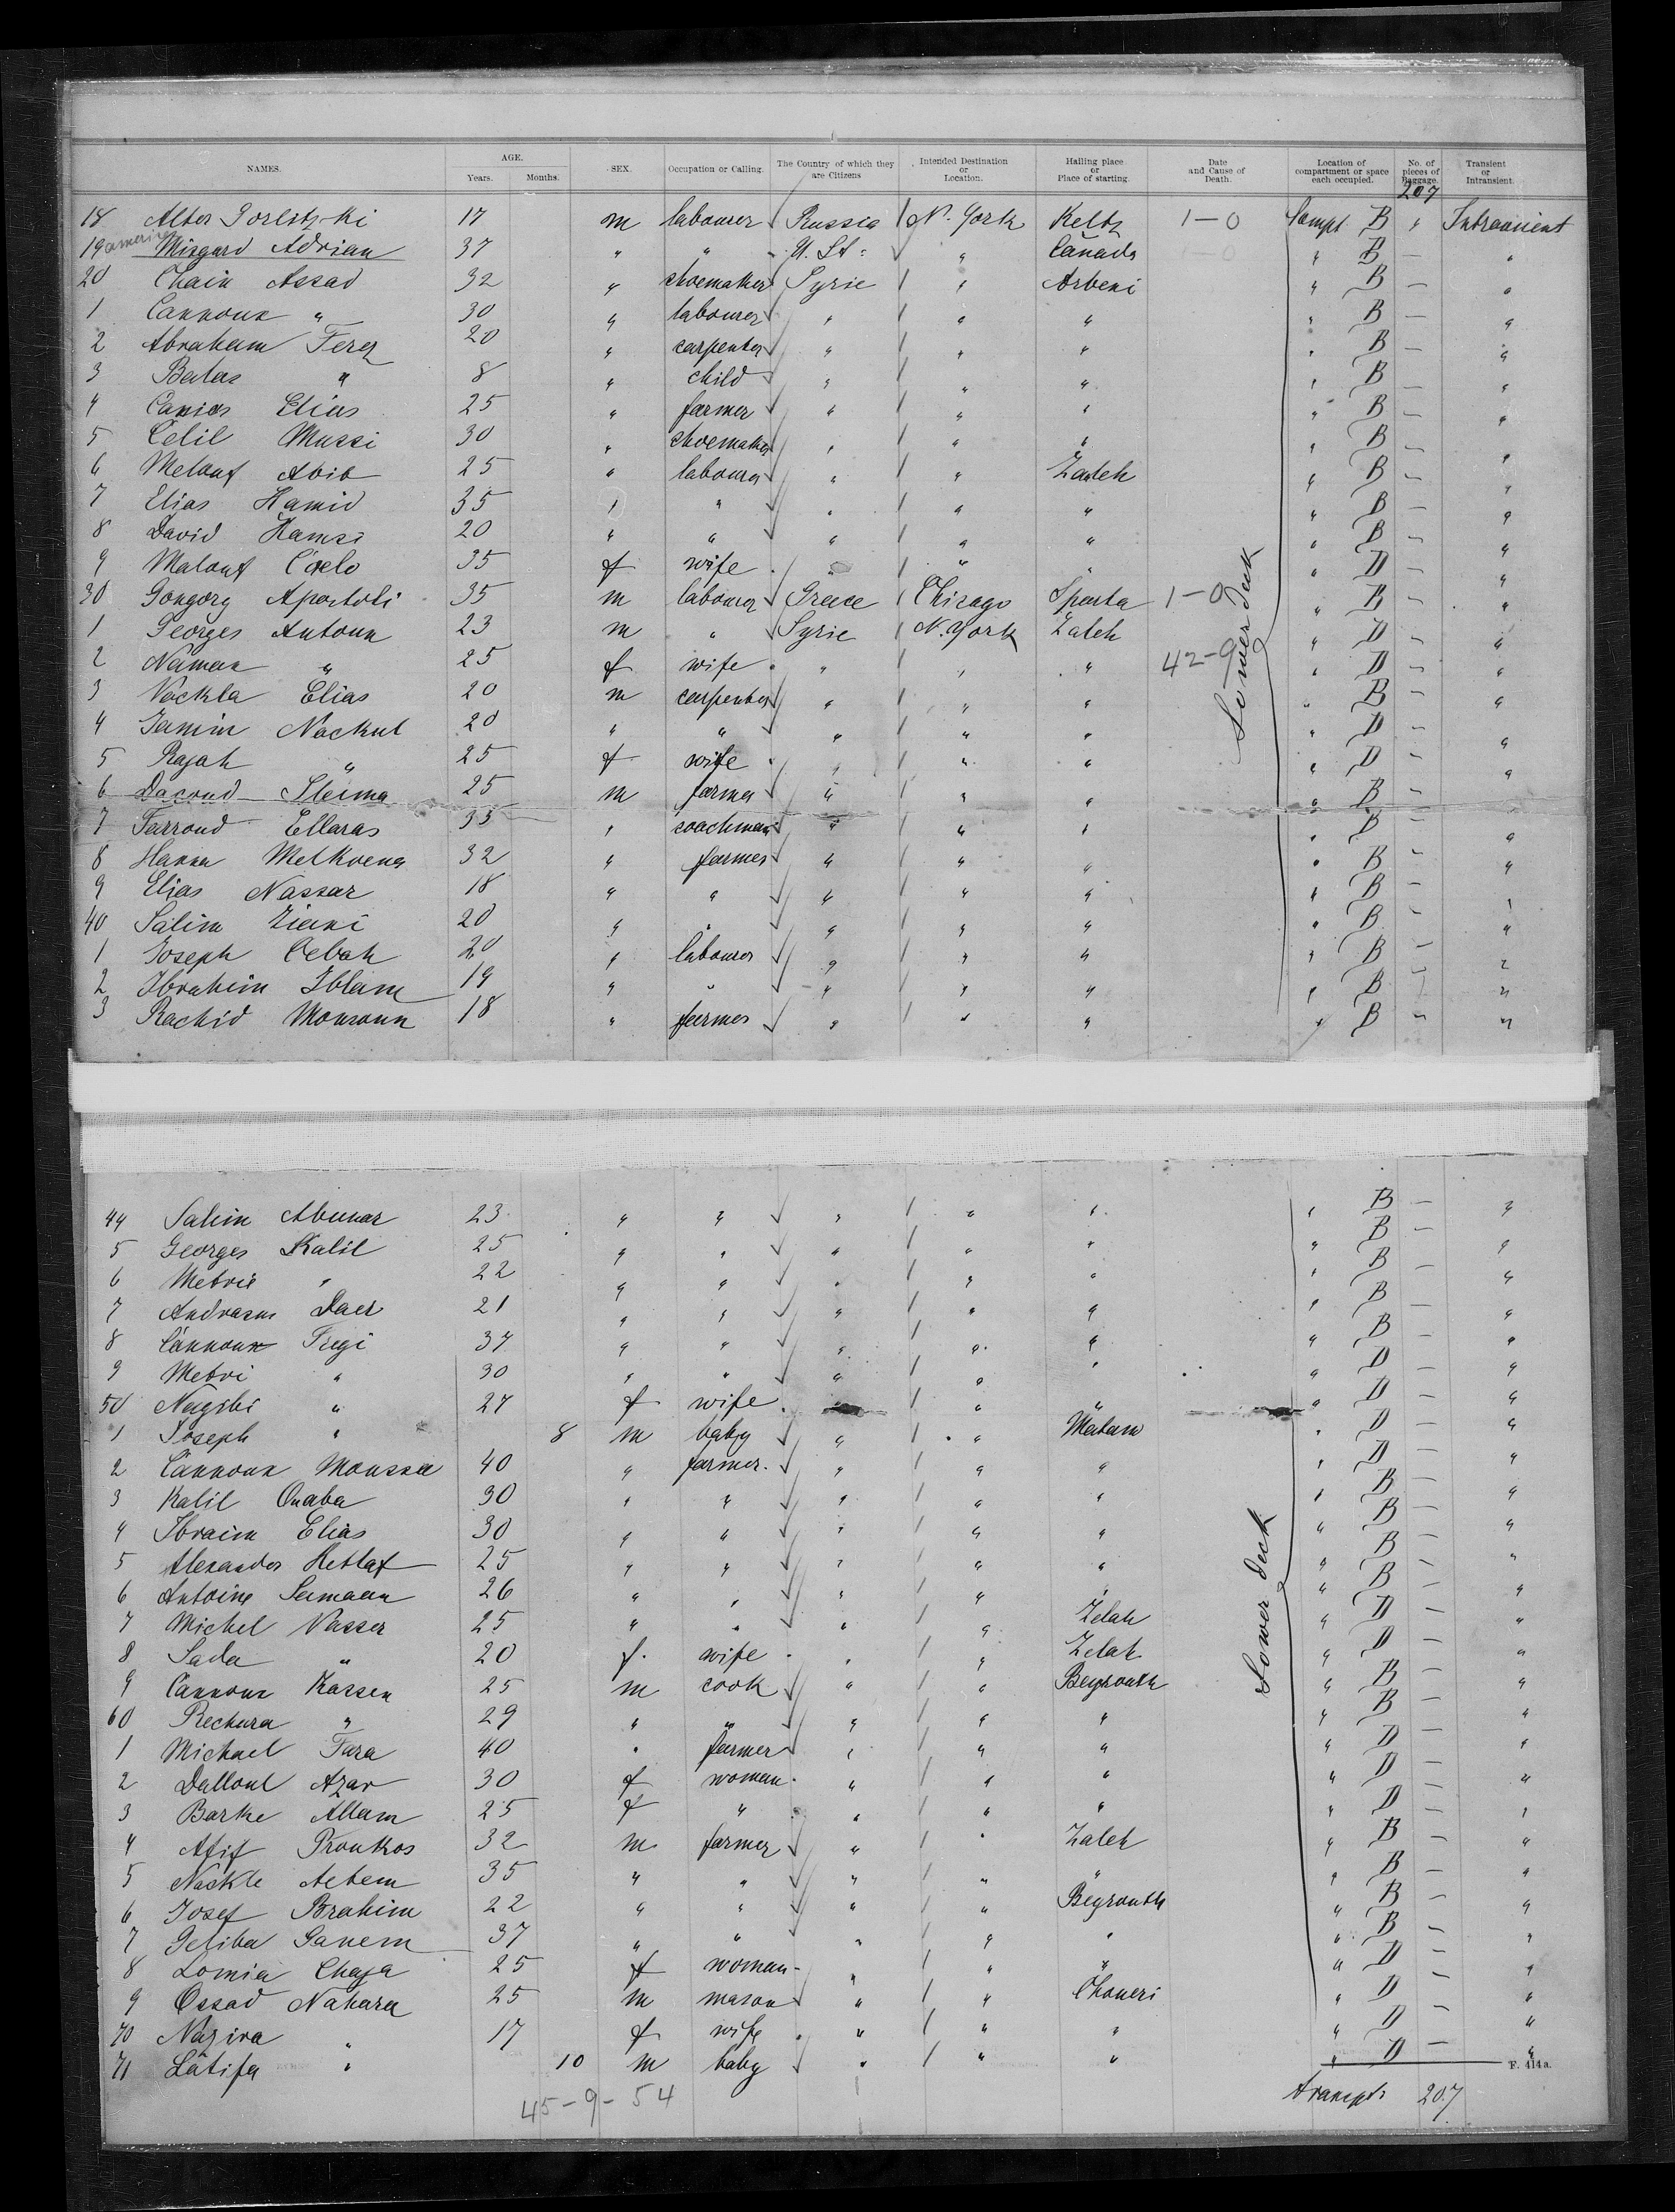 NAMES. AGE. Years. Months. SEX. Occupation or Calling. The Country of which they are Citizens Intended Destination or Location. Hailing place or Place of starting. Date and Cause of Death. Location of compartment or space each occupied. No. of pieces of Baggage. Transient or Intransient.
207
18 Alter 17 m labourer Russia / N. York Keltz 1-0 Compt B " Intransient
19 Misgard Adrian 37 " " U. St: " Canada 1-0 " B — "
20 Chain Assad 32 " shoemaker Syrie / " Arbeni " B — "
1 Cannoun " 30 " labourer " / " " " B — "
2 Abraham Ferez 20 " carpenter " / " " " B — "
3 " 8 " child " / " " " B — "
4 Elias 25 " farmer " / " " " B — "
5 Celil Mussi 30 " shoemaker " / " " " B — "
6 Melouf Abib 25 " labourer " / " Zaleh " B — "
7 Elias Hamid 35 " " " / " " " B — "
8 David Hamsi 20 " " " / " " " B — "
9 Malouf 35 f wife " / " " " D — "
30 Apostoli 35 m labourer Greece / Chicago Sparta 1-0 " B — "
1 Georges Antoun 23 m " Syrie / N. York Zaleh " D — "
2 Naman " 25 f wife " / " " 42-9 " D — "
3 Nackla Elias 20 m carpenter " / " " " B — "
4 Jamin Nackul 20 " " " / " " " D — "
5 Rajah " 25 f wife " / " " " D — "
6 Dacoud Sleima 25 m farmer " / " " " B — "
7 Farroud Ellaras 35 " coachman " / " " " B — "
8 Hanna 32 " farmer " / " " " B — "
9 Elias Nassar 18 " " " / " " " B — "
40 Salim Ziani 20 " " " / " " " B — "
1 Joseph Cebah 20 " labourer " / " " " B — "
2 Ibrahim Iblam 19 " " " / " " " B — "
3 Rachid 18 " farmer " / " " " B — "
Lower deck
44 Salim Abunar 23 " " " / " " " B — "
5 Georges Kalil 25 " " " / " " " B — "
6 Metrie " 22 " " " / " " " B — "
7 Daer 21 " " " / " " " B — "
8 Cannoun Fregi 37 " " " / " " " B — "
9 Metri " 30 " " " / " " " D — "
50 Nagibi " 27 f wife " / " " " D — "
1 Joseph " 8 m baby " / " Matam " D — "
2 Cannoun Moussa 40 " farmer " / " " " D — "
3 Kalil Onaba 30 " " " / " " " B — "
4 Ibraim Elias 30 " " " / " " " B — "
5 Alexander 25 " " " / " " " B — "
6 Antoine 26 " " " / " " " B — "
7 Michel Nasser 25 " " " / " Zelah " D — "
8 Sada " 20 f. wife " / " Zelah " D — "
9 Cannoun Kassen 25 m cook " / " Beyrouth " B — "
60 Rechura " 29 " " " / " " " B — "
1 Michael Fara 40 " farmer " / " " " D — "
2 Dalloul Azar 30 f woman " / " " " D — "
3 Barke Allam 25 f " " / " " " D — "
4 Afif Proukos 32 m farmer " / " Zaleh " B — "
5 Nackle 35 " " " / " " " B — "
6 Josef Brahim 22 " " " / " Beyrouth " B — "
7 Geliba Ganem 37 " " " / " " " B — "
8 Lomia Chaja 25 f woman " / " " " D — "
9 Ossad Nahara 25 m mason " / " Choueri " D — "
70 Nazira " 17 f wife " / " " " D — "
71 Latifa " 10 m baby " / " " " D — "
Lower deck
F. 414a.
45-9-54 transpt: 207